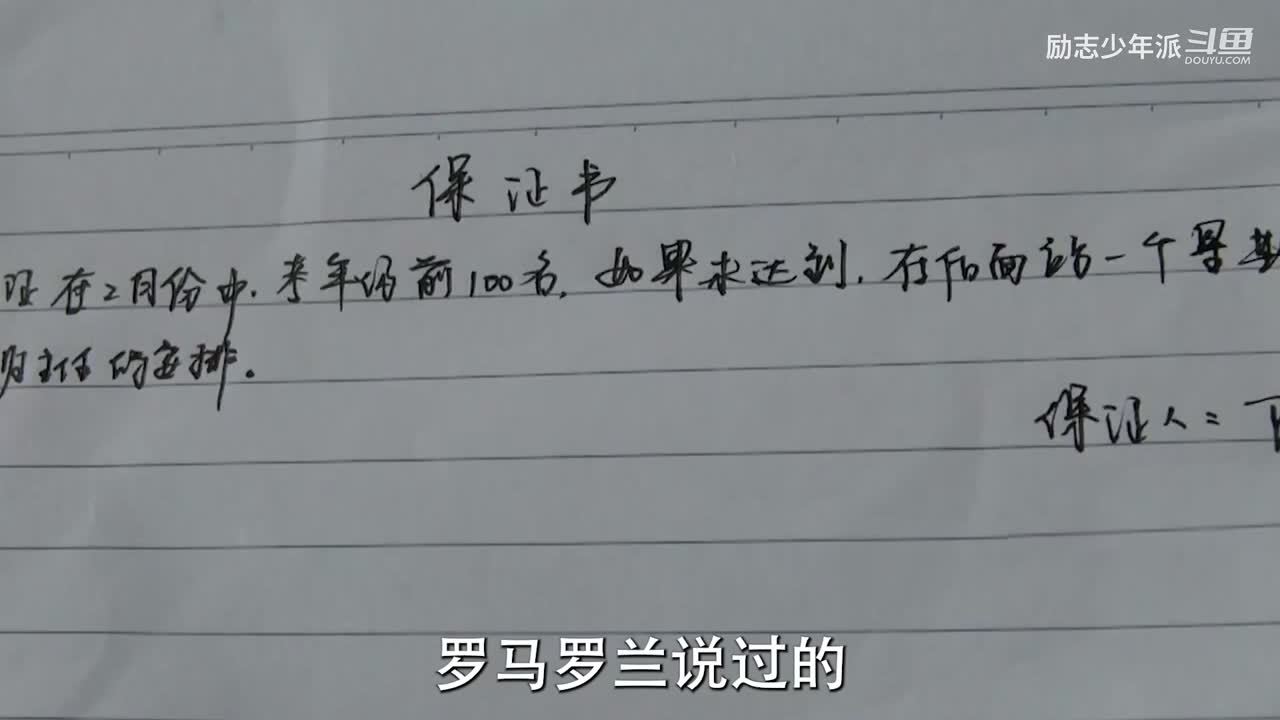 励志少年派 斗鱼
DOUYU.COM
保证书
证在2月份中.考年级前100名,如果未达到,在后面站一个星期
班主任的安排。
保证人:
罗马罗兰说过的